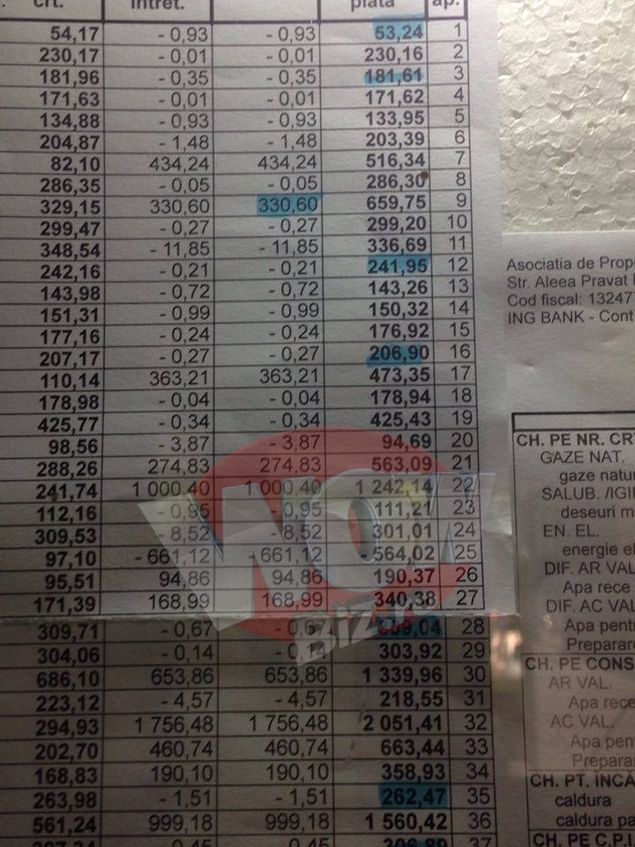 crt. intret. plata ap.
54,17 - 0,93 - 0,93 53,24 1
230,17 - 0,01 - 0,01 230,16 2
181,96 - 0,35 - 0,35 181,61 3
171,63 - 0,01 - 0,01 171,62 4
134,88 - 0,93 - 0,93 133,95 5
204,87 - 1,48 - 1,48 203,39 6
82,10 434,24 434,24 516,34 7
286,35 - 0,05 - 0,05 286,30 8
329,15 330,60 330,60 659,75 9
299,47 - 0,27 - 0,27 299,20 10
348,54 - 11,85 - 11,85 336,69 11
242,16 - 0,21 - 0,21 241,95 12
143,98 - 0,72 - 0,72 143,26 13
151,31 - 0,99 - 0,99 150,32 14
177,16 - 0,24 - 0,24 176,92 15
207,17 - 0,27 - 0,27 206,90 16
110,14 363,21 363,21 473,35 17
178,98 - 0,04 - 0,04 178,94 18
425,77 - 0,34 - 0,34 425,43 19
98,56 - 3,87 - 3,87 94,69 20
288,26 274,83 274,83 563,09 21
241,74 1 000,40 1 000,40 1 242,14 22
112,16 - 0,95 - 0,95 111,21 23
309,53 - 8,52 - 8,52 301,01 24
97,10 - 661,12 - 661,12 - 564,02 25
95,51 94,86 94,86 190,37 26
171,39 168,99 168,99 340,38 27
309,71 - 0,67 309,04 28
304,06 - 0,14 303,92 29
686,10 653,86 653,86 1 339,96 30
223,12 - 4,57 - 4,57 218,55 31
294,93 1 756,48 1 756,48 2 051,41 32
202,70 460,74 460,74 663,44 33
168,83 190,10 190,10 358,93 34
263,98 - 1,51 - 1,51 262,47 35
561,24 999,18 999,18 1 560,42 36
37
WOW
BIZ
Asociatia de Prop
Str. Aleea Pravat
Cod fiscal: 13247
ING BANK - Cont
CH. PE NR. CRT
GAZE NAT.
gaze natur
SALUB. /IGI
deseuri m
EN. EL.
energie el
DIF. AR VAL
Apa rece
DIF. AC VAL
Apa pent
Preparare
CH. PE CONS
AR VAL.
Apa rece
AC VAL.
Apa pen
Preparar
CH. PT. ÎNCĂ
caldura
caldura pa
CH. PE C.P.I.